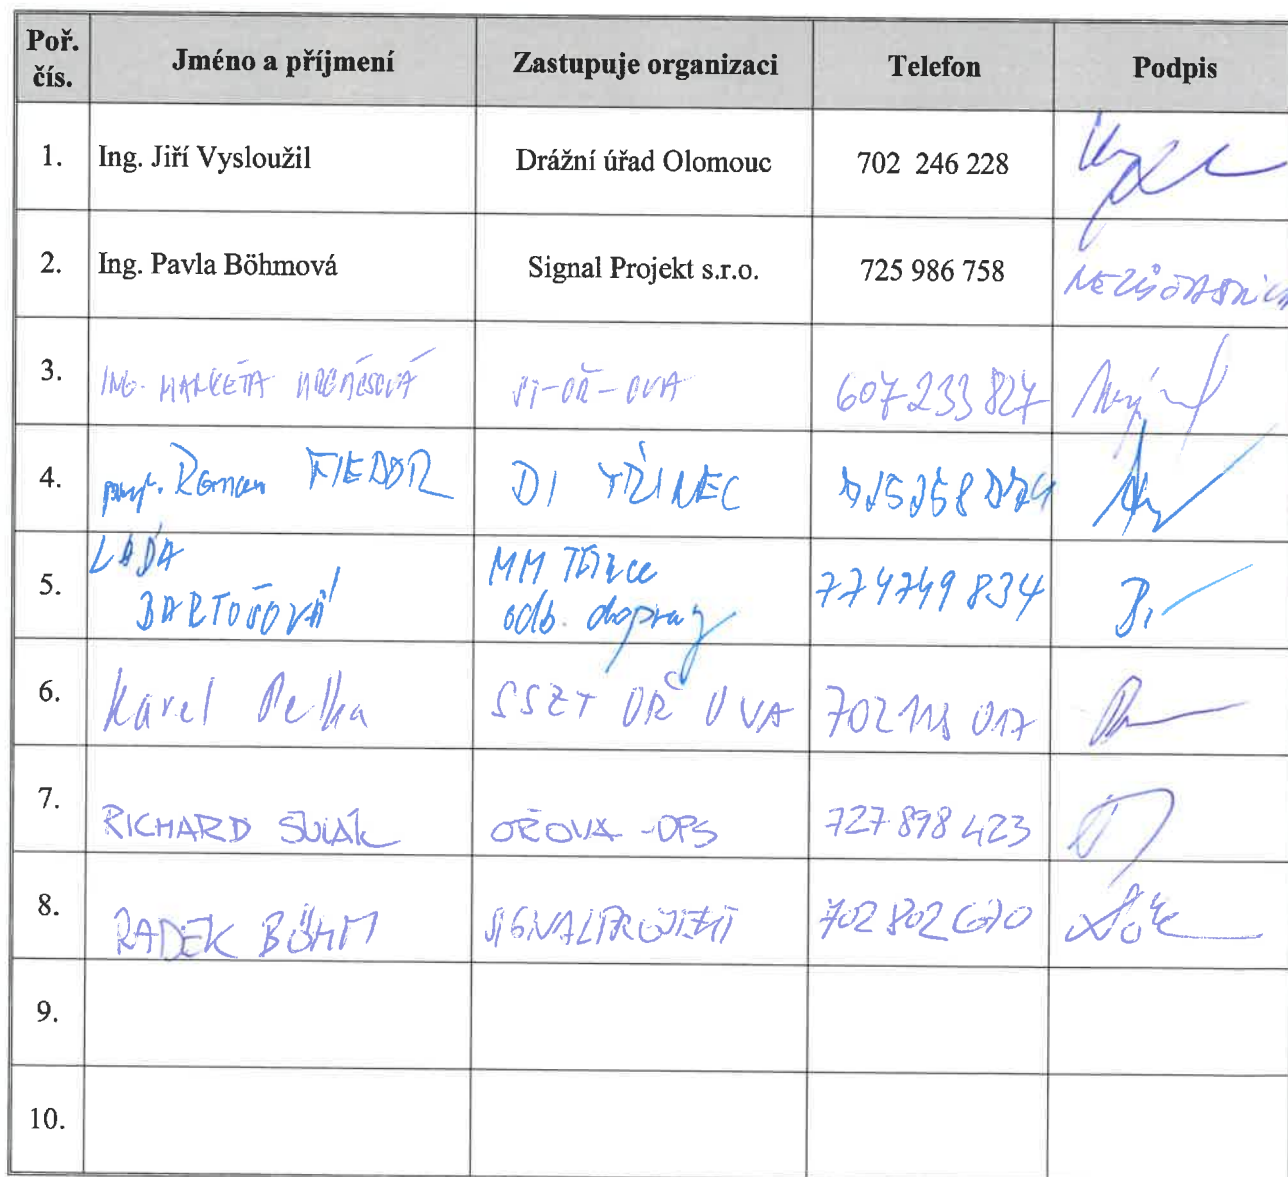 Poř. čís. Jméno a příjmení Zastupuje organizaci Telefon Podpis
1. Ing. Jiří Vysloužil Drážní úřad Olomouc 702 246 228
2. Ing. Pavla Böhmová Signal Projekt s.r.o. 725 986 758
3. ING. MARKÉTA 607 233 827
4. Roman FIEDOR DI TŘINEC
5. LADA BARTOŠOVÁ MM Třince odb. dopravy 774749 834
6. Karel Pelka SSZT OŘ OVA 702 017
7. RICHARD OŘOVA -OPS 727 898 423
8. RADEK BÖHM SIGNALPROJEKT 702 802 670
9.
10.